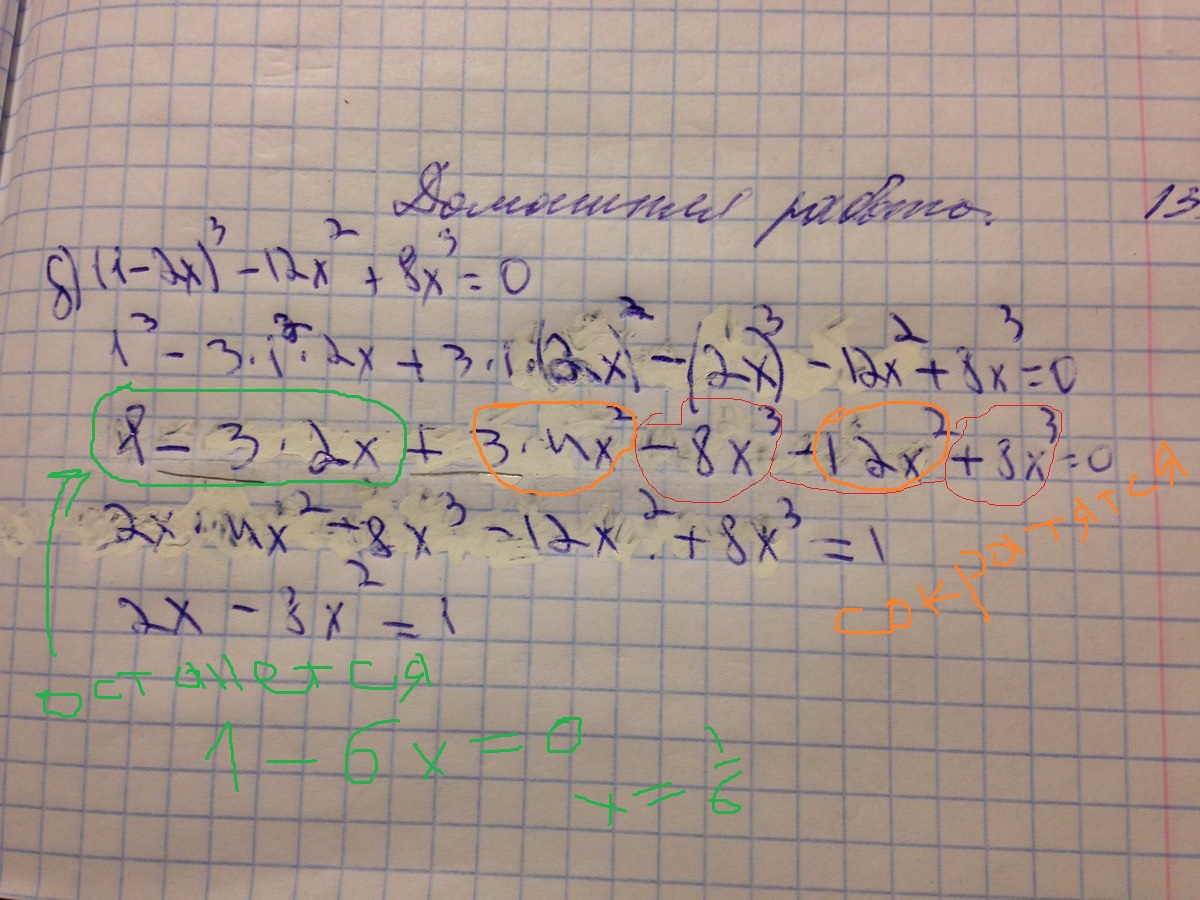 Домашняя работа. 13
б) (1-2x)³ - 12x² + 8x³ = 0
1³ - 3·1²·2x + 3·1·(2x)² - (2x)³ - 12x² + 8x³ = 0
1 - 3·2x + 3·4x² - 8x³ - 12x² + 8x³ = 0
сократятся
2x·4x² - 8x³ - 12x² + 8x³ = 1
2x - 3x² = 1
останется
1 - 6x = 0
x = 1/6